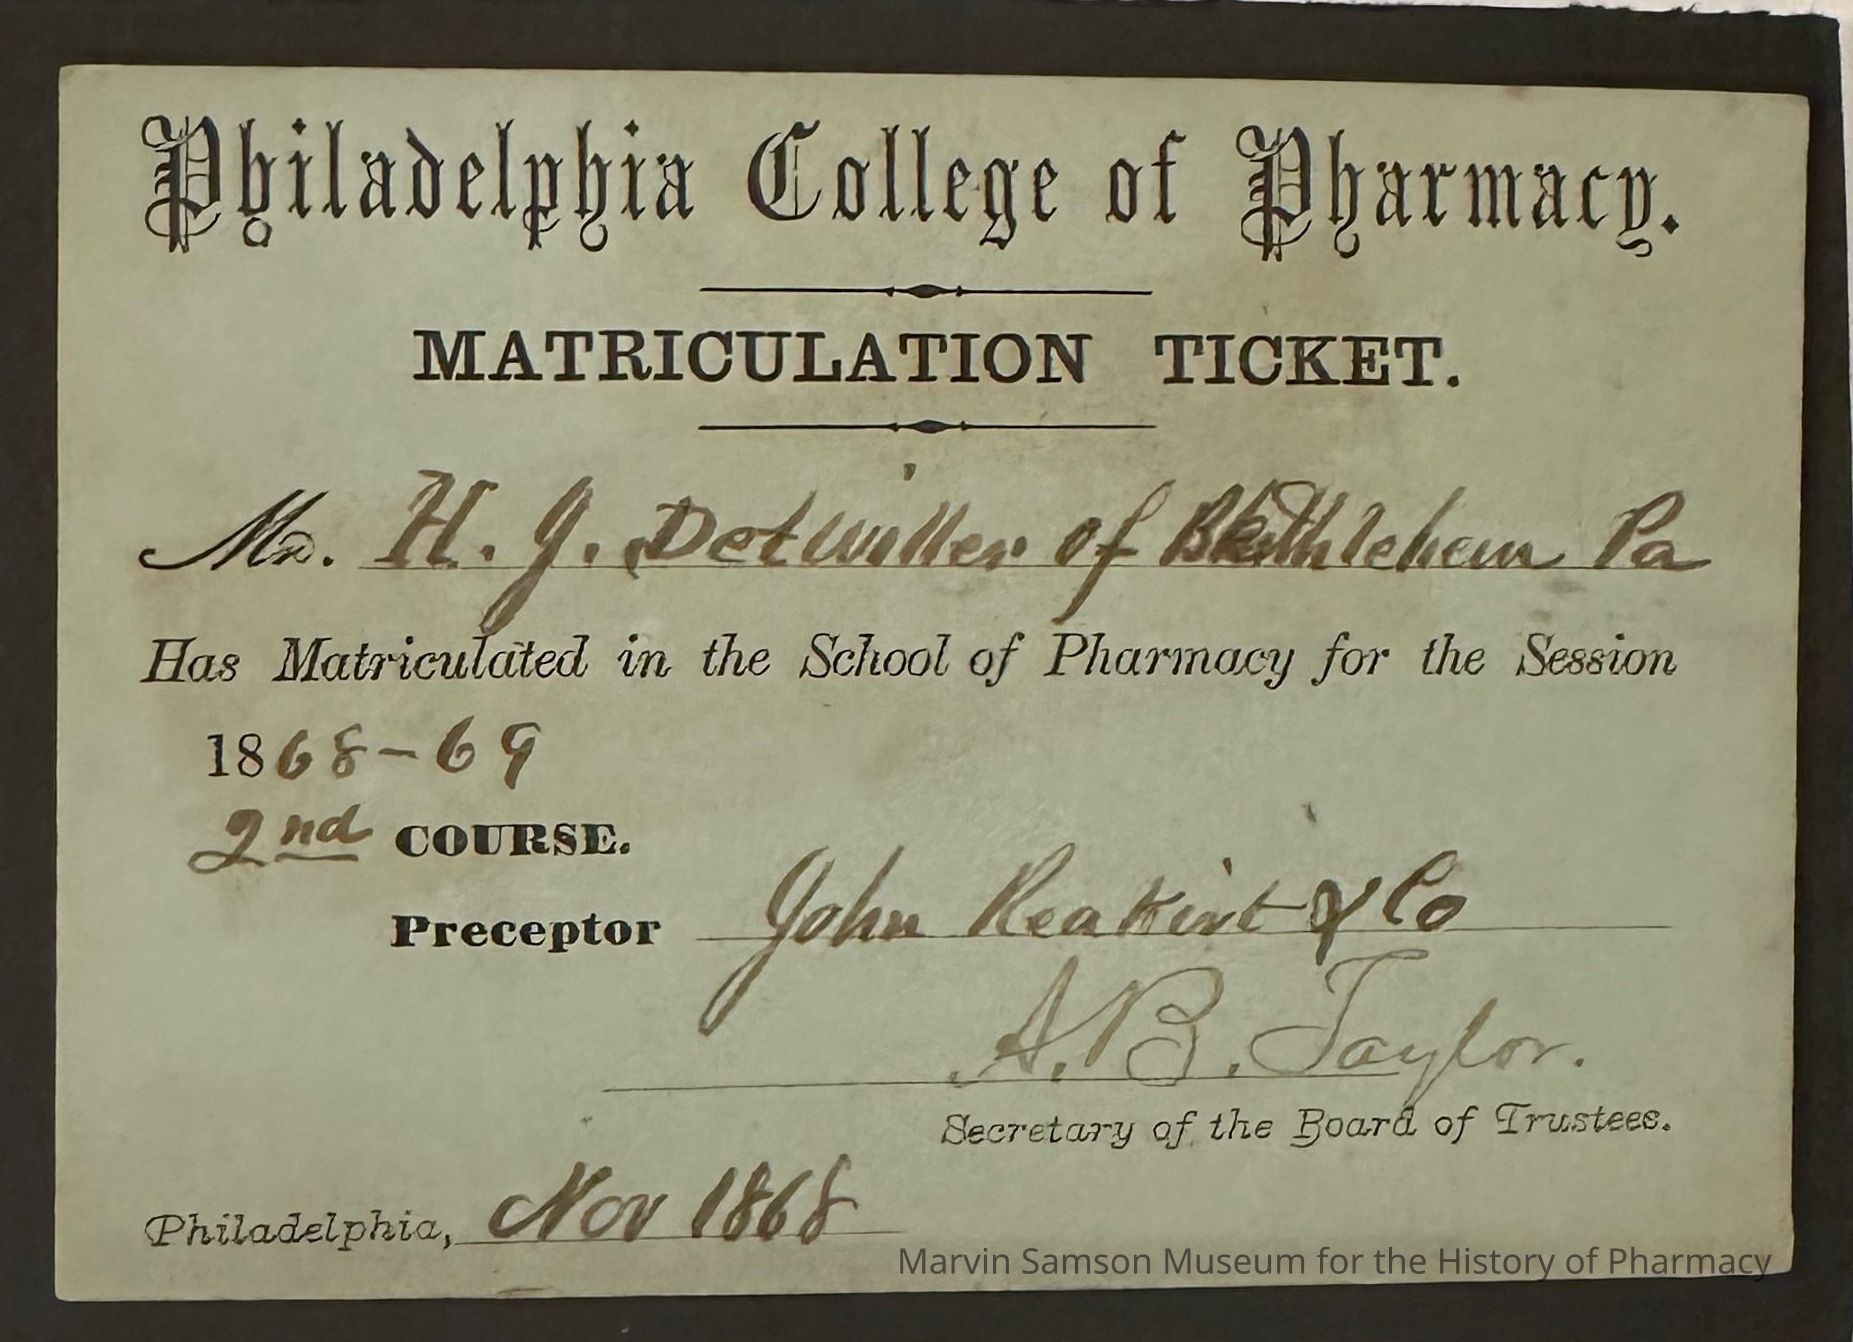 Philadelphia College of Pharmacy.
MATRICULATION TICKET.
Mr. H. J. Detwiller of Bethlehem Pa
Has Matriculated in the School of Pharmacy for the Session
1868-69
2nd COURSE.
Preceptor John Reakirt & Co
A. B. Taylor.
Secretary of the Board of Trustees.
Philadelphia, Nov 1868
Marvin Samson Museum for the History of Pharmacy